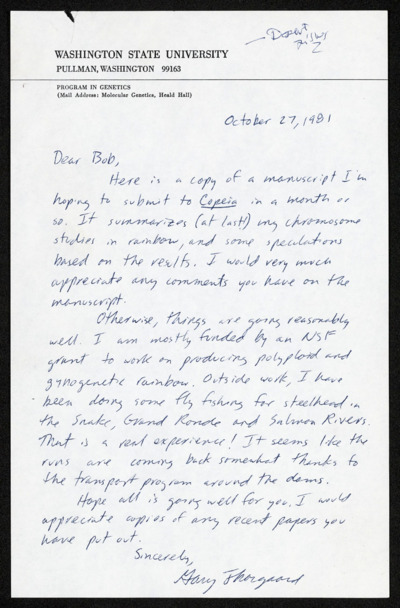 Desert
Fishes
WASHINGTON STATE UNIVERSITY
PULLMAN, WASHINGTON 99163
PROGRAM IN GENETICS
(Mail Address: Molecular Genetics, Heald Hall)
October 27, 1981
Dear Bob,
Here is a copy of a manuscript I'm
hoping to submit to Copeia in a month or
so. It summarizes (at last!) my chromosome
studies in rainbow, and some speculations
based on the results. I would very much
appreciate any comments you have on the
manuscript.
Otherwise, things are going reasonably
well. I am mostly funded by an NSF
grant to work on producing polyploid and
gynogenetic rainbow. Outside work, I have
been doing some fly fishing for steelhead in
the Snake, Grand Ronde and Salmon Rivers.
That is a real experience! It seems like the
runs are coming back somewhat thanks to
the transport program around the dams.
Hope all is going well for you. I would
appreciate copies of any recent papers you
have put out.
Sincerely,
Gary Thorgaard